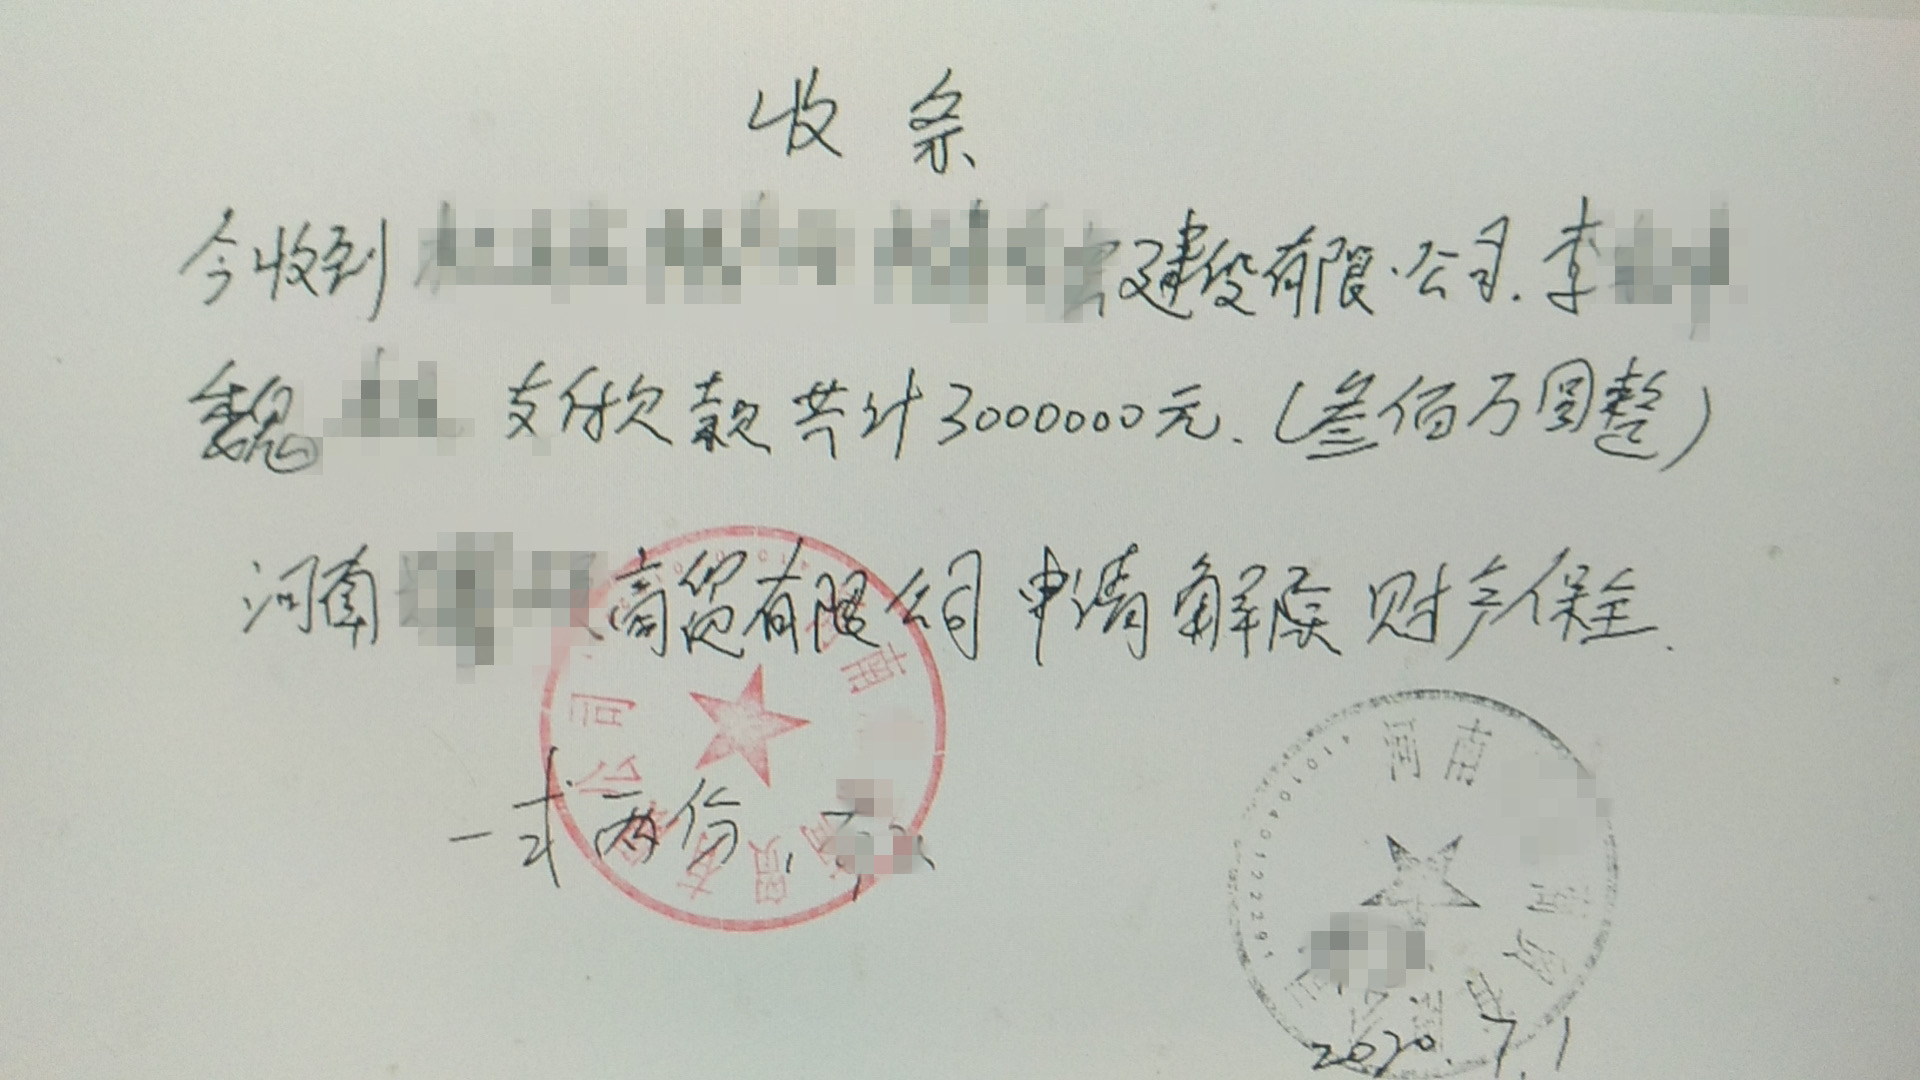 收条
今收到 建设有限公司.李
魏 支付欠款共计3000000元.(叁佰万圆整)
河南 商贸有限公司申请解除财产保全.
一式两份.
南 商贸有限公司
河南 商贸有限公司
4101040122291
2020.7.1